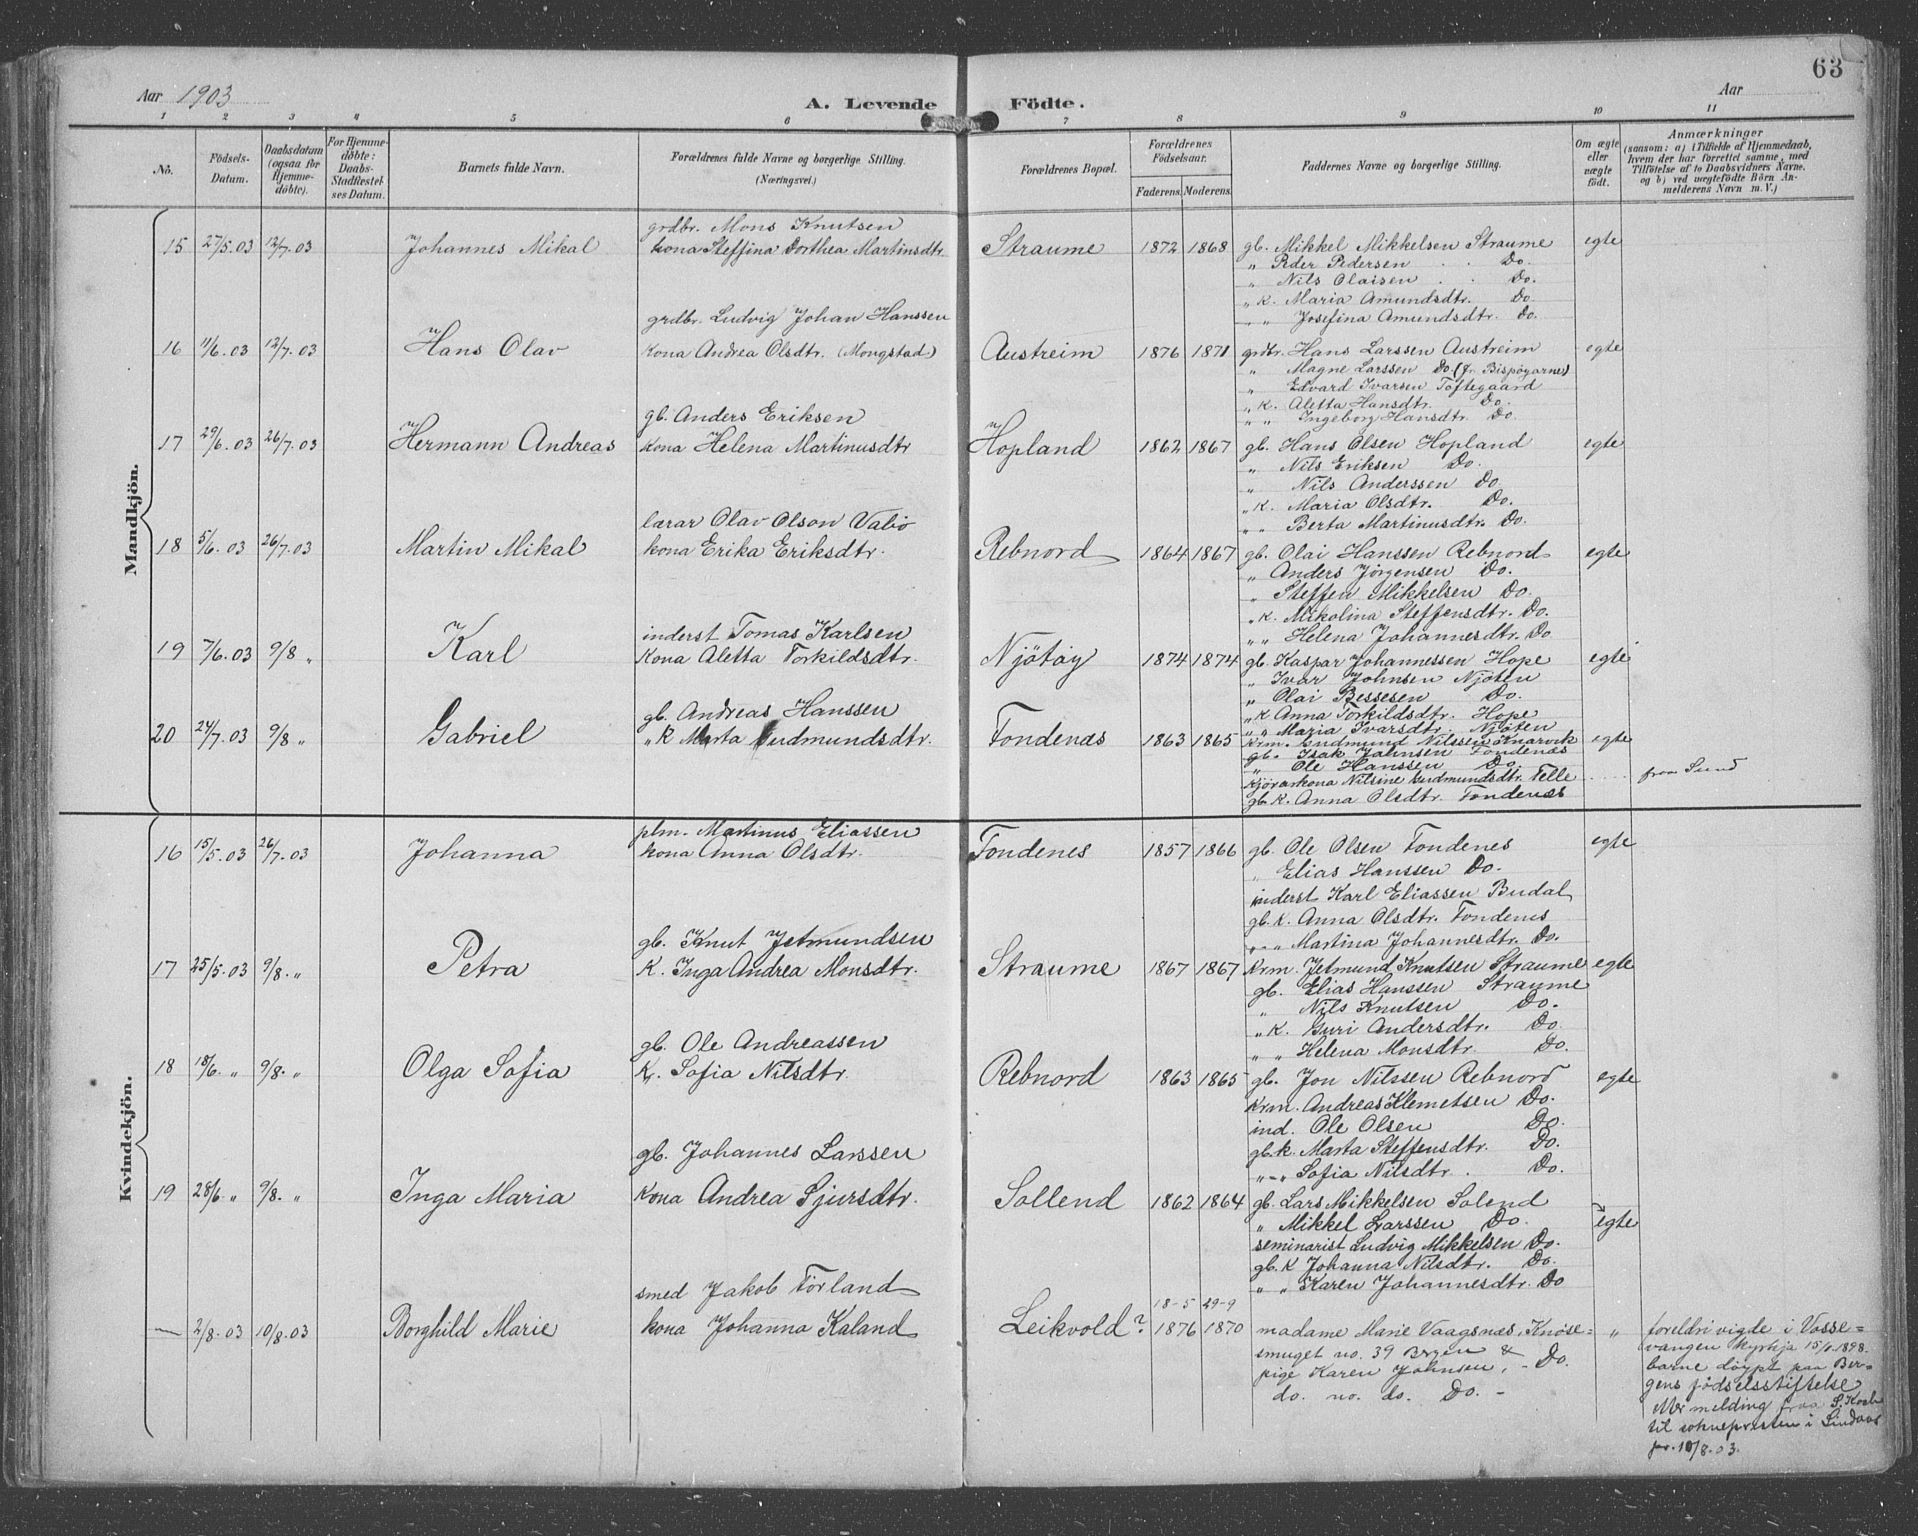 63
Aar 1903
A. Levende Födte.
Aar
1 2 3 4 5 6 7 8 9 10 11
No.
Födsels-
Datum.
Daabsdatum
(ogsaa for
Hjemme-
döbte).
For Hjemme-
döbte:
Daabs-
Stadfæstel-
ses Datum.
Barnets fulde Navn.
Forældrenes fulde Navne og borgerlige Stilling.
(Næringsvei.)
Forældrenes Bopæl.
Forældrenes
Födselsaar.
Faderens. Moderens.
Faddernes Navne og borgerlige Stilling.
Om ægte
eller
uægte
födt.
Anmærkninger
(saasom: a) i Tilfælde af Hjemmedaab,
hvem der har forrettet samme, med
Tilföielse af to Daabsvidners Navne.
og b) ved uægtefödte Börn An-
melderens Navn m. V.)
Mandkjön.
grdbr. Mons Knutsen
15 27/5.03 12/7.03 Johannes Mikal kona Steffina Dorthea Martinsdtr. Straume 1872 1868 gb. Mikkel Mikkelsen Straume egte
" Peder Pedersen Do.
" Nils Olaisen Do.
" k. Maria Amundsdtr. Do
" " Josefina Amundsdtr. Do.
grdbr. Ludvig Johan Hanssen
16 11/6.03 12/7.03 Hans Olav kona Andrea Olsdtr. (Mongstad) Austreim 1876 1871 grdbr. Hans Larssen Austreim egte
" Magne Larssen Do (fr. Bispøyarne)
" Edvard Ivarsen Toftegaard
" k. Aletta Hansdtr. Do.
" " Ingeborg Hansdtr. Do.
gb. Anders Eriksen
17 29/6.03 26/7.03 Hermann Andreas kona Helena Martinusdtr Hopland 1862 1867 gb. Hans Olsen Hopland egte
" Nils Eriksen Do.
" Nils Anderssen Do
" k. Maria Olsdtr. Do.
" " Berta Martinusdtr. Do.
lærar Olav Olson Valiö
18 5/6.03 26/7.03 Martin Mikal kona Erika Eriksdtr. Rebnord 1864 1867 gb. Olai Hanssen Rebnord egte
" Anders Jörgensen Do.
" Steffen Mikkelsen Do.
" k. Mikolina Steffensdtr. Do.
" " Helena Johannesdtr. Do
inderst Tomas Karlsen
19 7/6.03 9/8 " Karl Kona Aletta Torkildsdtr. Njötöy 1874 1874 gb. Kaspar Johannessen Hope egte
" Ivar Johnsen Njöten
" Olai Bessesen Do.
" k Anna Torkildsdtr. Hope
" " Maria Ivarsdtr. Njöten
gb. Andreas Hanssen
20 24/7.03 9/8 " Gabriel " K Marta Gudmundsdtr. Fondenæs 1863 1865 Krm. Gudmund Nilssen Knarvik egte
gb. Isak Jahnsen Fondenæs
" Ole Hanssen Do.
Kjörarkona Nilsine Gudmundsdtr. Telle fraa Sund
gb. K. Anna Olsdtr. Fondenæs
Kvindekjön.
plm. Martinus Eliassen
16 15/5.03 26/7.03 Johanna kona Anna Olsdtr. Fondenes 1857 1866 gb. Ole Olsen Fondenes egte
" Elias Hanssen Do.
inderst Karl Eliassen Budal
gb. k. Anna Olsdtr. Fondenes
" " Martina Johannesdtr. Do.
gb. Knut Jetmundsen
17 25/5.03 9/8. " Petra K. Inga Andrea Monsdtr. Straume 1867 1867 Krm. Jetmund Knutsen Straume egte
gb. Elias Hanssen Straume
" Nils Knutsen Do.
" k. Guri Andersdtr. Do.
" " Helena Monsdtr. Do.
gb. Ole Andreassen
18 18/6. " 9/8. " Olga Sofia K. Sofia Nilsdtr. Rebnord 1863 1865 gb. Jon Nilssen Rebnord egte
Krm. Andreas Klemetsen Do.
ind. Ole Olsen Do.
gb. k. Marta Steffensdtr. Do.
" " Sofia Nilsdtr. Do.
gb. Johannes Larssen
19 28/6 " 9/8. " Inga Maria Kona Andrea Sjursdtr. Sollend 1862 1864 gb. Lars Mikkelsen Solend egte
" Mikkel Larssen Do.
seminarist Ludvig Mikkelsen Do.
gb. K Johanna Nilsdtr. Do.
" " Karen Johannesdtr. Do
smed Jakob Törland 18-5 29-9
— 2/8.03 10/8.03 Borghild Marie kona Johanna Kaland Leikvold? 1876 1870 madame Marie Vaagsnæs, Knöse- " foreldri vigde i Vosse-
smuget no. 39 Brgen & vangen kyrkja 15/ 1898.
pige Karen Johnsen, - Do. barne döypt paa Ber-
do. no. do. Do. - gens födselsstiftelse
melding fraa S. Koch
til soknepresten i Lindaas
10/8.03.